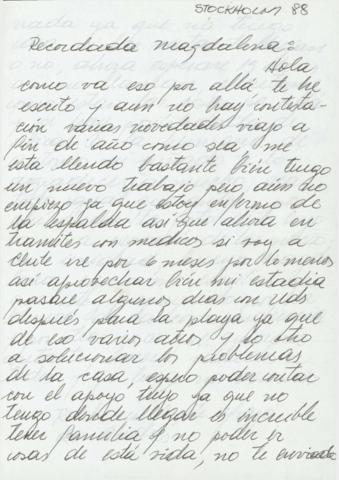 STOCKHOLM 88
Recordada Magdalena:
Hola
como va eso por allá te he
escrito y aun no hay contesta-
ción varias novedades viajo a
fin de año como sea me
esta llendo bastante bien tengo
un nuevo trabajo pero aún no
empiezo ya que estoy enfermo de
la espalda asi que ahora en
tramites con medicos si voy a
chile ire por 6 meses por lo menos
asi aprovechar bien mi estadia
pasare algunos dias con uds
después para la playa ya que
de eso varios años y lo otro
a solucionar los problemas
de la casa, espero poder contar
con el apoyo tuyo ya que no
tengo donde llegar es increible
tener familia y no poder ir
cosas de esta vida, no te